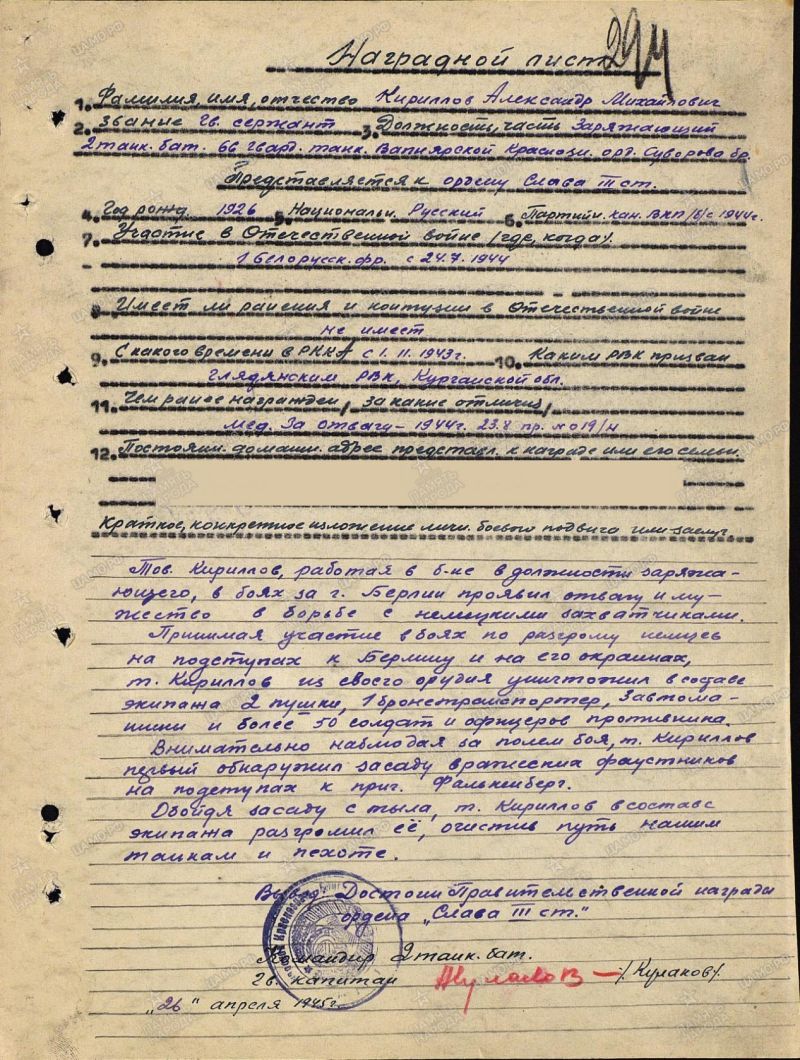 Наградной лист 294
1. Фамилия, имя, отчество Кириллов Александр Михайлович
2. Звание Гв. сержант 3. Должность, часть Заряжающий
2 танк. бат. 66 гвард. танк. Вапнярской Краснозн. орд. Суворова бр.
Представляется к ордену Слава III ст.
4. Год рожд. 1926 5. Национальн. Русский 6. Партийн. кан. ВКП/б/ с 1944г.
7. Участие в Отечественной войне /где, когда/.
1 Белорусск. фр. с 24.7.1944
8. Имеет ли ранения и контузии в Отечественной войне
не имеет
9. С какого времени в РККА с 1.11.1943г. 10. Каким РВК призван
Глядянским РВК, Курганской обл.
11. Чем ранее награжден /за какие отличия/
мед. За отвагу - 1944г. 23.8 пр. № 019/н
12. Постоян. домашн. адрес представл. к награде или его семьи.
Краткое, конкретное изложение личн. боевого подвига или заслуг
Тов. Кириллов, работая в б-не в должности заряжа-
ющего, в боях за г. Берлин проявил отвагу и му-
жество в борьбе с немецкими захватчиками.
Принимая участие в боях по разгрому немцев
на подступах к Берлину и на его окраинах,
т. Кириллов из своего орудия уничтожил в составе
экипажа 2 пушки, 1 бронетранспортер, 3 автома-
шины и более 50 солдат и офицеров противника.
Внимательно наблюдая за полем боя, т. Кириллов
первый обнаружил засаду вражеских фаустников
на подступах к приг. Фалькенберг.
Обойдя засаду с тыла, т. Кириллов в составе
экипажа разгромил её, очистив путь нашим
танкам и пехоте.
Вывод Достоин Правительственной награды
ордена „Слава III ст."
Командир 2 танк. бат.
Гв. капитан Кулаков /Кулаков/.
„26" апреля 1945г.